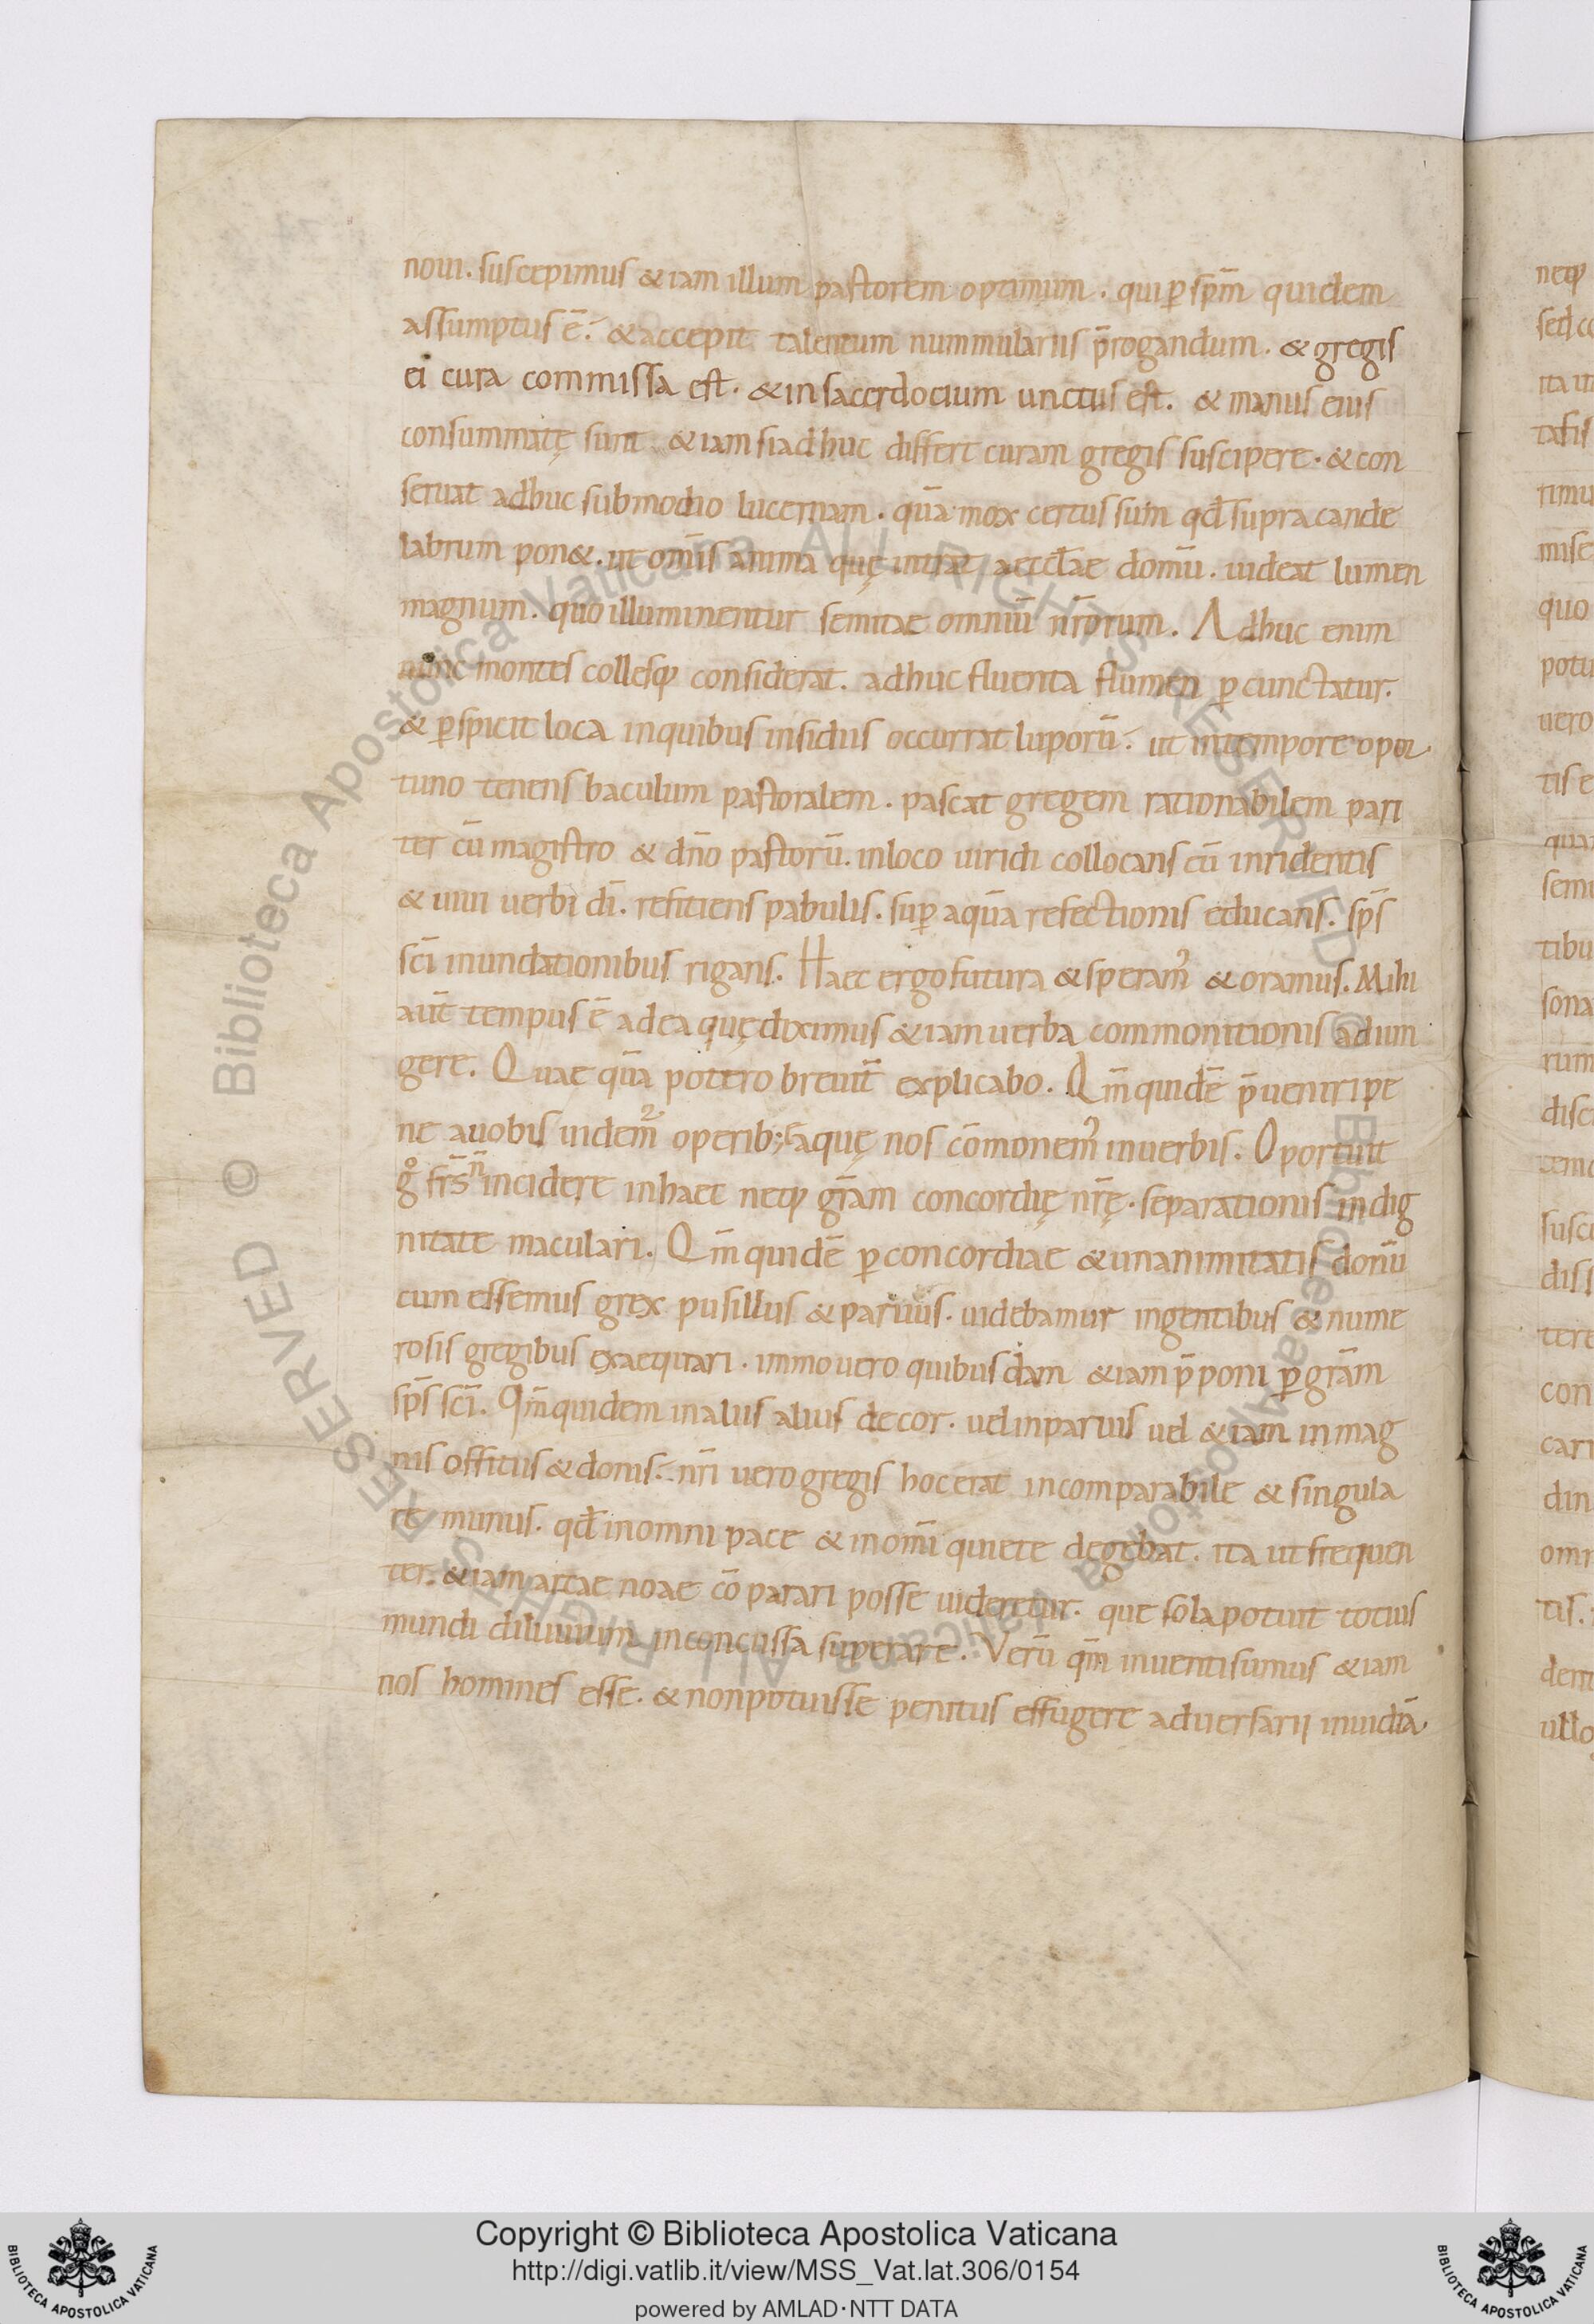 noui. suscepimus & iam illum pastorem optimum. qui ꝑ sp̄m quidem
assumptus ē. & accepit talentum nummulariis p̄rogandum. & gregis
ei cura commissa est. & in sacerdocium unctus est. & manus eius
consummatę sunt. & iam si adhuc differt curam gregis suscipere. & con
seruat adhuc sub modio lucernam. quā mox certus sum qđ supra cande
labrum pon&. ut om̄is anima quę intrat aeccłae domū. uideat lumen
magnum. quo illuminentur semitae omniū nr̄orum. Adhuc enim
nunc montes collesqꝫ considerat. adhuc fluenta flumen ꝑcunctatur.
& ꝑspicit loca in quibus insidiis occurrat luporū. ut in tempore opor
tuno tenens baculum pastoralem. pascat gregem rationabilem pari
ter cū magistro & dn̄o pastorū. in loco uiridi collocans cū in ridentis
& uiui uerbi dī. refitiens pabulis. suꝑ aquā refectionis educans. sp̄s
sc̄i inundationibus rigans. Haec ergo futura & speram᾽ & oramus. Mihi
aūt tempus ē ad ea quę diximus & iam uerba commonitionis adium
gere. Quae quā potero breuit̄ explicabo. Qm̄ quidē p̄ueniri pe
ne a uobis uidem᾽ operib; ea quę nos cōmonem᾽ in uerbis. Oportuit
gͦ fr̄s n̄ incidere in haec neqꝫ gr̄am concordię nr̄ę. separationis indig
nitate maculari. Qm̄ quidē ꝑ concordiae & unanimitatis donū
cum essemus grex pusillus & paruus. uidebamur ingentibus & nume
rosis gregibus exaequari. immo uero quibusdam & iam p̄poni ꝑ gr̄am
sp̄s sc̄i. Qm̄ quidem in aliis alius decor. uel in paruis uel & iam in mag
nis offitiis & donis. nr̄i uero gregis hoc erat incomparabile & singula
re munus. qđ in omni pace & in om̄i quiete degebat. ita ut frequen
ter. & iam arcae noae cōparari posse uideretur. que sola potuit totius
mundi diluuium inconcussa superare. Verū qm̄ inuenti sumus & iam
nos homines esse. & non potuisse penitus effugere aduersarii inuidiā
Copyright © Biblioteca Apostolica Vaticana
http://digi.vatlib.it/view/MSS_Vat.lat.306/0154
powered by AMLAD·NTT DATA